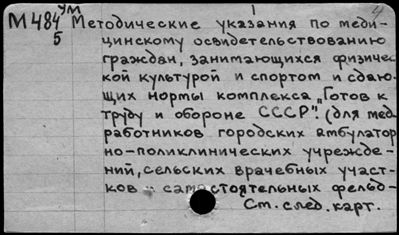 ум
М484 Методические указания по меди-
5 цинскому освидетельствованию
граждан, занимающихся физичес-
кой культурой и спортом и сдаю-
щих нормы комплекса „Готов к
труду и обороне СССР". (для мед.
работников городских амбулатор
но-поликлинических учрежде-
ний, сельских врачебных участ-
ков и самостоятельных фельд-
См. след. карт.